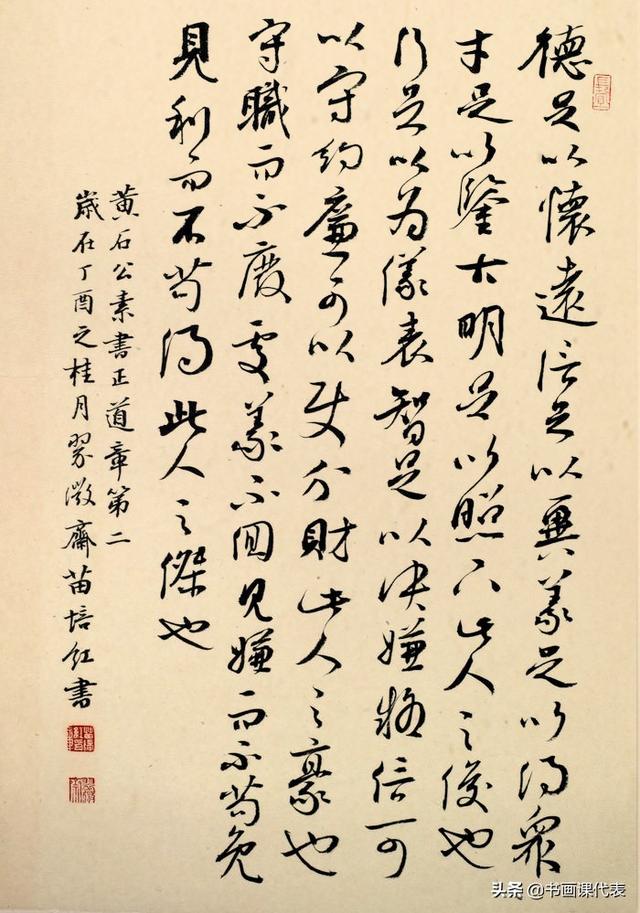 德足以懷遠信足以異義足以得眾
才足以鑒古明足以照下此人之俊也
行足以為儀表智足以決嫌疑信可
以守約廉可以使分財此人之豪也
守職而不廢處義而不回見嫌而不苟免
見利而不苟得此人之傑也
黃石公素書正道章第二
歲在丁酉之桂月翠微齋苗培紅書
头条 @书画课代表